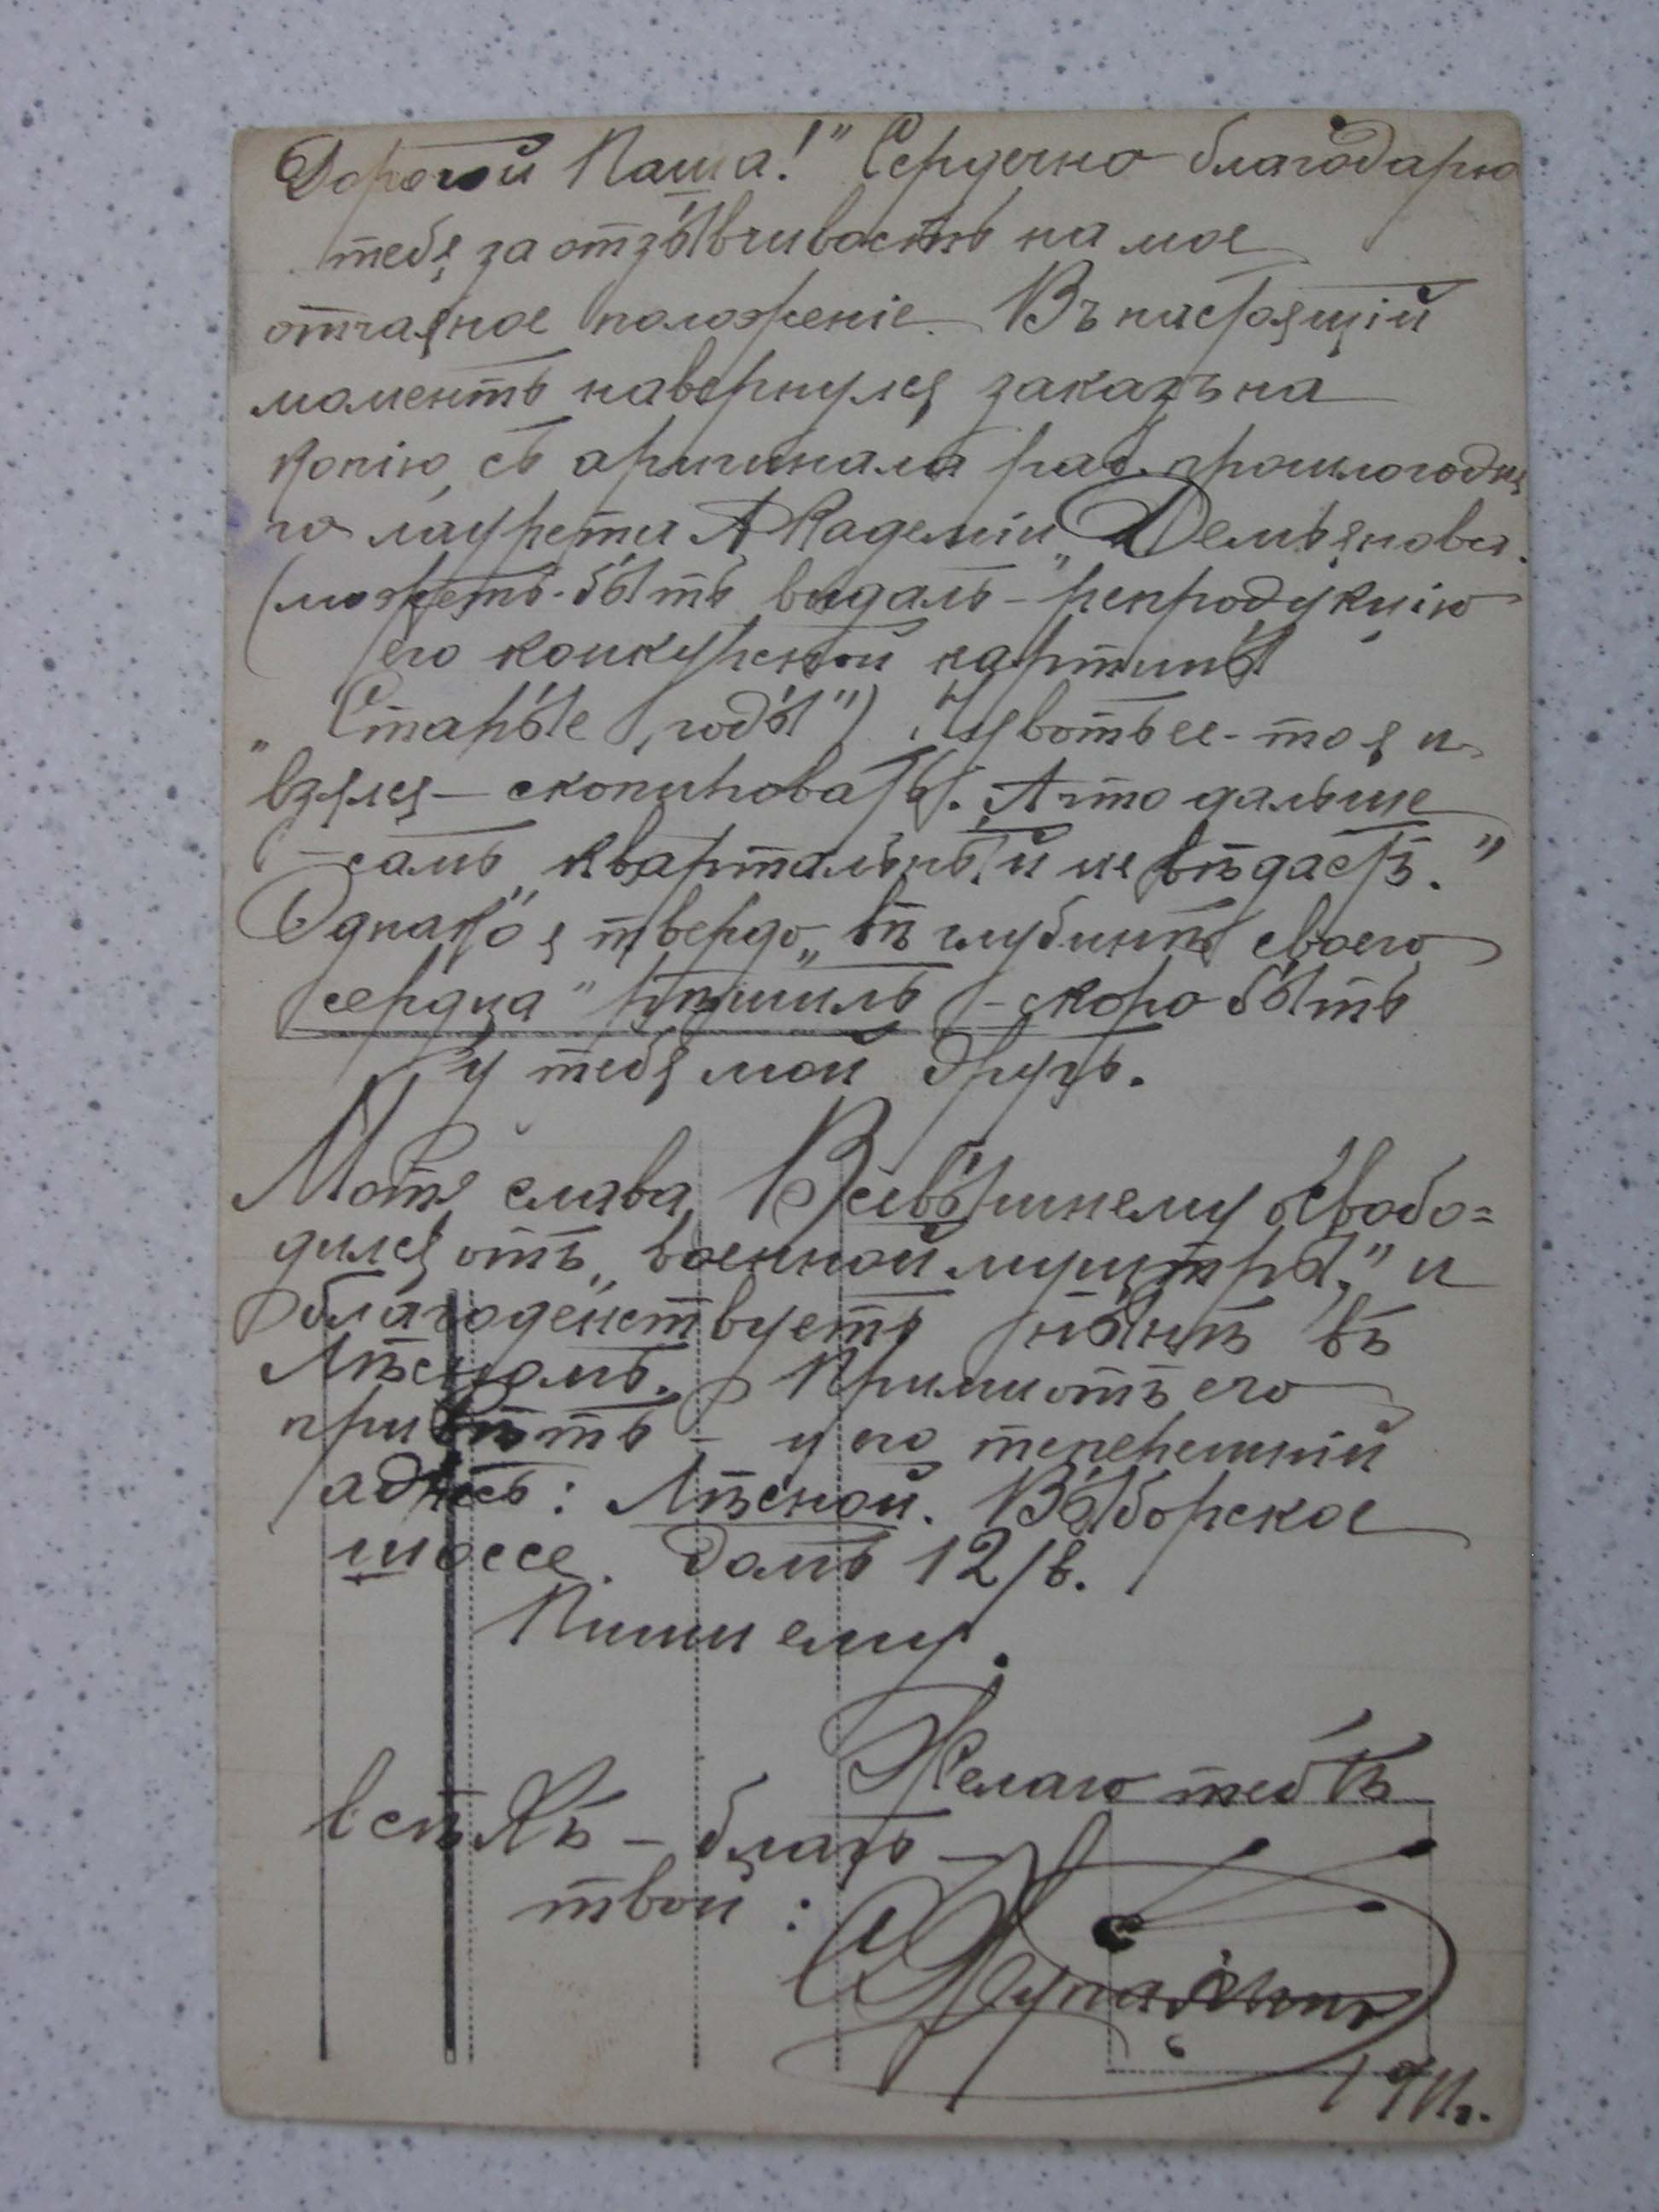 Дорогой Паша!" Сердечно благодарю
тебя за отзывчивость на мое
отчаяное положеніе. Въ настоящій
моментъ навернулся заказъ на
копію, съ аригинала раб. прошлогодня
го лаурета Академіи „Демьянова.
(можетъ-быть видалъ - репродукцію
его конкурсной картины
„Старые годы") Ну вотъ ее-то я и
взялся - скопировать. А что дальше
- самъ „квартальный не вѣдаетъ."
Однако я твердо „въ глубинѣ своего
сердца" рѣшилъ - скоро быть
у тебя мой другъ.
Мотя слава Всевышнему освобо=
дился отъ „военной муштры," и
благоденствуетъ нынѣ въ
Лѣсномъ. Прими отъ его
привѣтъ - и его теперешній
адресъ: Лѣсной. Выборское
шоссе. домъ 12/в.
Пиши ему.
Желаю тебѣ
всѣхъ - благъ -
твой:
1911г.